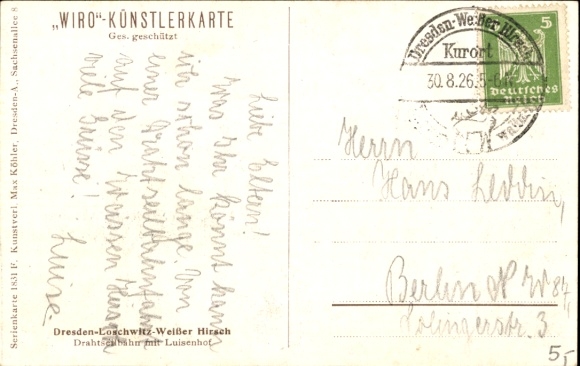 „WIRO"-KÜNSTLERKARTE
Ges. geschützt
Serienkarte 1831 F. Kunstverl. Max Köhler, Dresden-A., Sachsenallee 8
Liebe Eltern!
Was Ihr könnt hans
wie schon lange von
einer Drahtseilbahnfahrt
auf den Weissen Hirsch
viele Grüsse!
Luise.
Dresden-Loschwitz-Weißer Hirsch
Drahtseilbahn mit Luisenhof
Dresden-Weißer Hirsch
Kurort
30.8.26.5-6
Wald
5
Deutsches
Reich
Herrn
Hans Leddin,
Berlin N W 87,
Solingerstr. 3
5,-